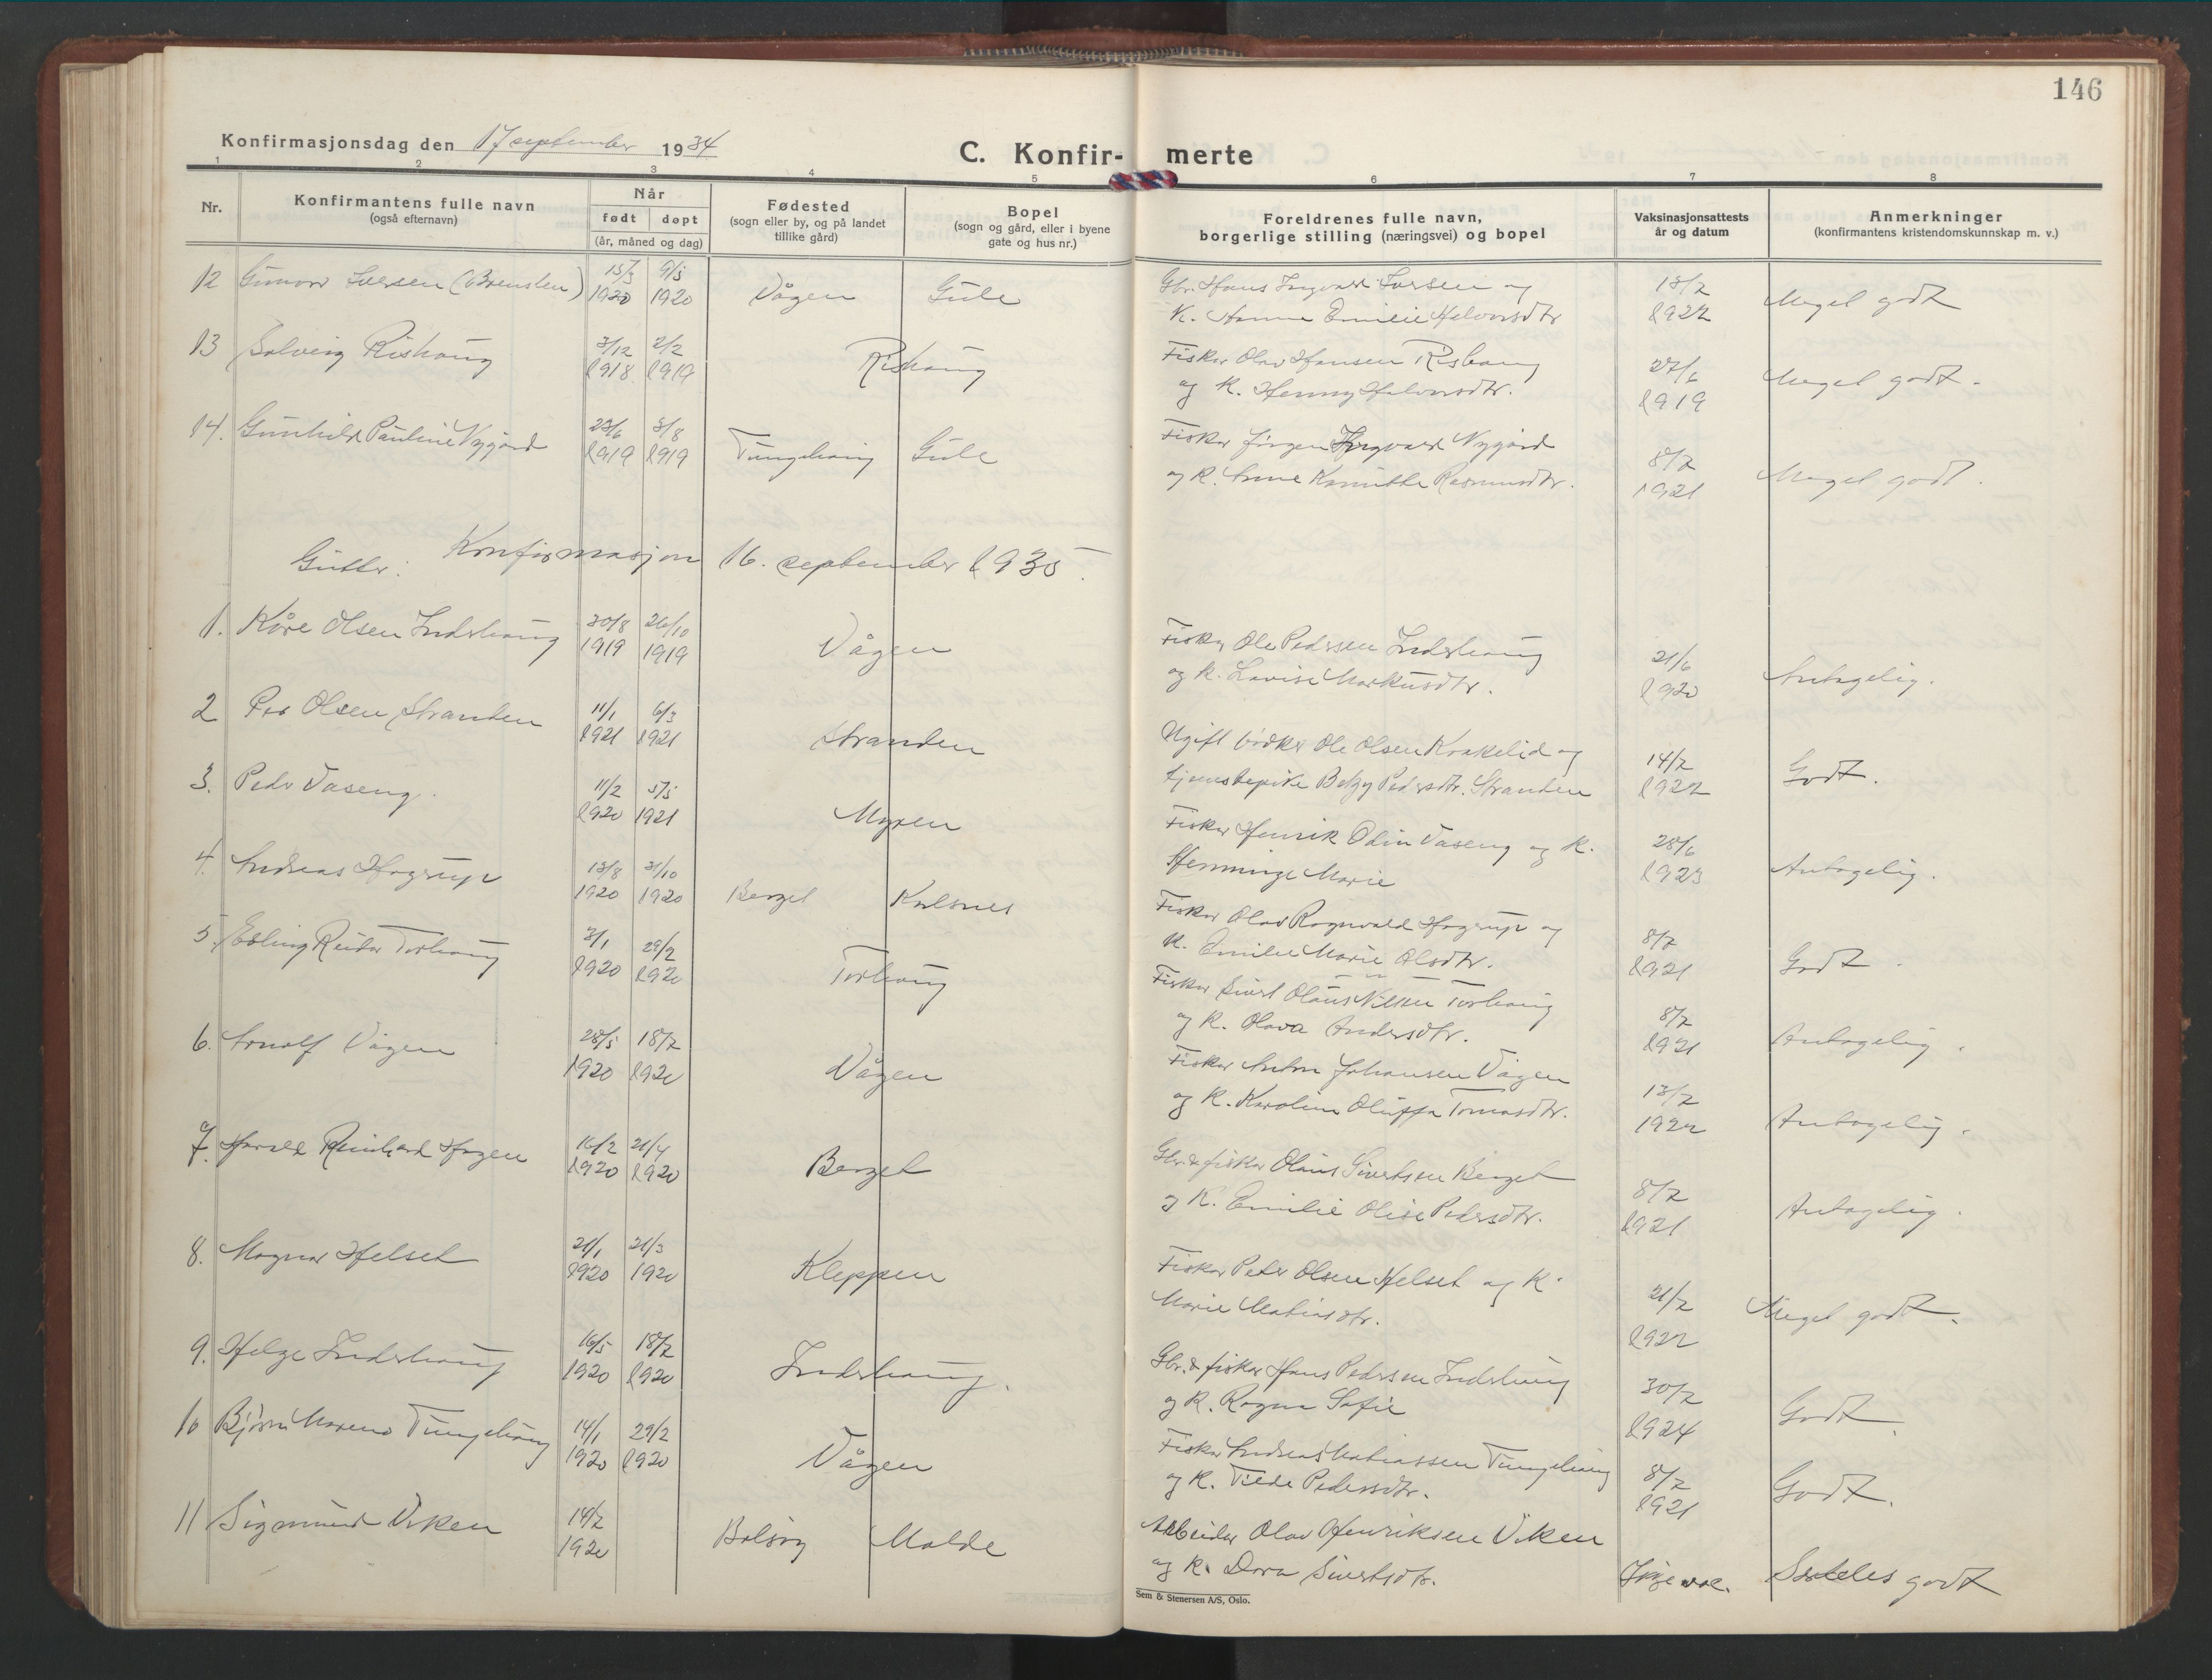 146
Konfirmasjonsdag den 17 september 1934
C. Konfir- merte
1 2 3 4 5 6 7 8
Nr. Konfirmantens fulle navn (også efternavn) Når født døpt (år, måned og dag) Fødested (sogn eller by, og på landet tillike gård) Bopel (sogn og gård, eller i byene gate og hus nr.) Foreldrenes fulle navn, borgerlige stilling (næringsvei) og bopel Vaksinasjonsattests år og datum Anmerkninger (konfirmantens kristendomskunnskap m. v.)
12 Gunvor Iversen 1920 9/5 1920 Vågen Gule Gbr. Hans Ingvald Iversen og 1922 Meget godt
K. Anna Emilie Halvorsdtr
13 Solveig Rishaug 3/12 1918 2/2 1919 Rishaug Fisker Olav Hansen Rishaug 27/6 1919 Meget godt.
og K. Henny Halvorsdtr.
14. Gunhild Pauline Nygård 23/6 1919 3/8 1919 Tungehaug Gule Fisker Jørgen Ingvald Nygård 8/7 1921 Meget godt.
og K. Anne Rasmusdtr.
Gutter: Konfirmasjon 16. september 1935.
1. Kåre Olsen Inderhaug 30/8 1919 26/10 1919 Vågen Fisker Ole Pedersen Inderhaug 21/6 1920 Antagelig.
og K. Lovise Markusdtr.
2 Per Olsen Stranden 11/1 1921 6/3 1921 Stranden Ugift bødker Ole Olsen Krakelid og 14/7 1922 Godt.
tjenestepike Betzy Pedersdtr. Stranden
3. Peder Vaseng. 11/2 1920 5/5 1921 Myren Fisker Henrik Odin Vaseng og K. 28/6 1923 Antagelig.
Hemminge Marie
4. Andreas Hagrup 13/8 1920 31/10 1920 Berget Karlsnes Fisker Olav Ragnvald Hagrup og 8/7 1921 Godt.
K. Emilie Marie Olsdtr.
5. Erling Reidar Torhaug 3/1 1920 29/2 1920 Torhaug Fisker Sivert Olaus Nilsen Torhaug 8/7 1921 Antagelig.
og K. Olava Andersdtr.
6. Arnolf Vågen 28/5 1920 18/7 1920 Vågen Fisker Anton Johansen Vågen 13/7 1922 Antagelig.
og K. Karoline Oluffa Tomasdtr.
7. Harald Reinhard Hagen 16/2 1920 21/4 1920 Berget Gbr. & fisker Olaus Sivertsen Berget 8/7 1921 Antagelig.
og K. Emilie Olise Pedersdtr.
8. Magnar Helset 21/1 1920 21/3 1920 Kleppen Fisker Peter Olsen Helset og K. 21/7 1922 Meget godt.
Marie Matiasdtr.
9. Helge Inderhaug 16/5 1920 18/7 1920 Inderhaug. Gbr. & fisker Hans Pedersen Inderhaug 30/7 1924 Godt.
og K. Ragna Sofie
10 Bjørn Tungehaug 14/1 1920 29/2 1920 Vågen Fisker Andreas Matiassen Tungehaug 8/7 1921 Godt.
og K. Tilde Pedersdtr.
11 Sigmund Viken 14/7 1920 Bolsøy Molde Arbeider Olav Henriksen Viken Ikke vac. Særdeles godt
og K. Dora Sivertsdtr.
Sem & Stenersen A/S, Oslo.